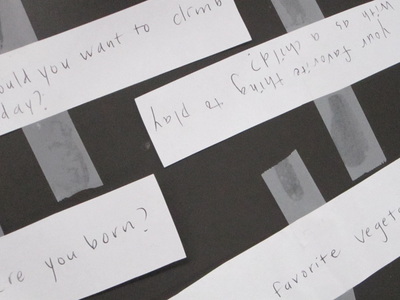 ould you want to climb
day?
your favorite thing to play
with as a child?
ere you born?
favorite veget